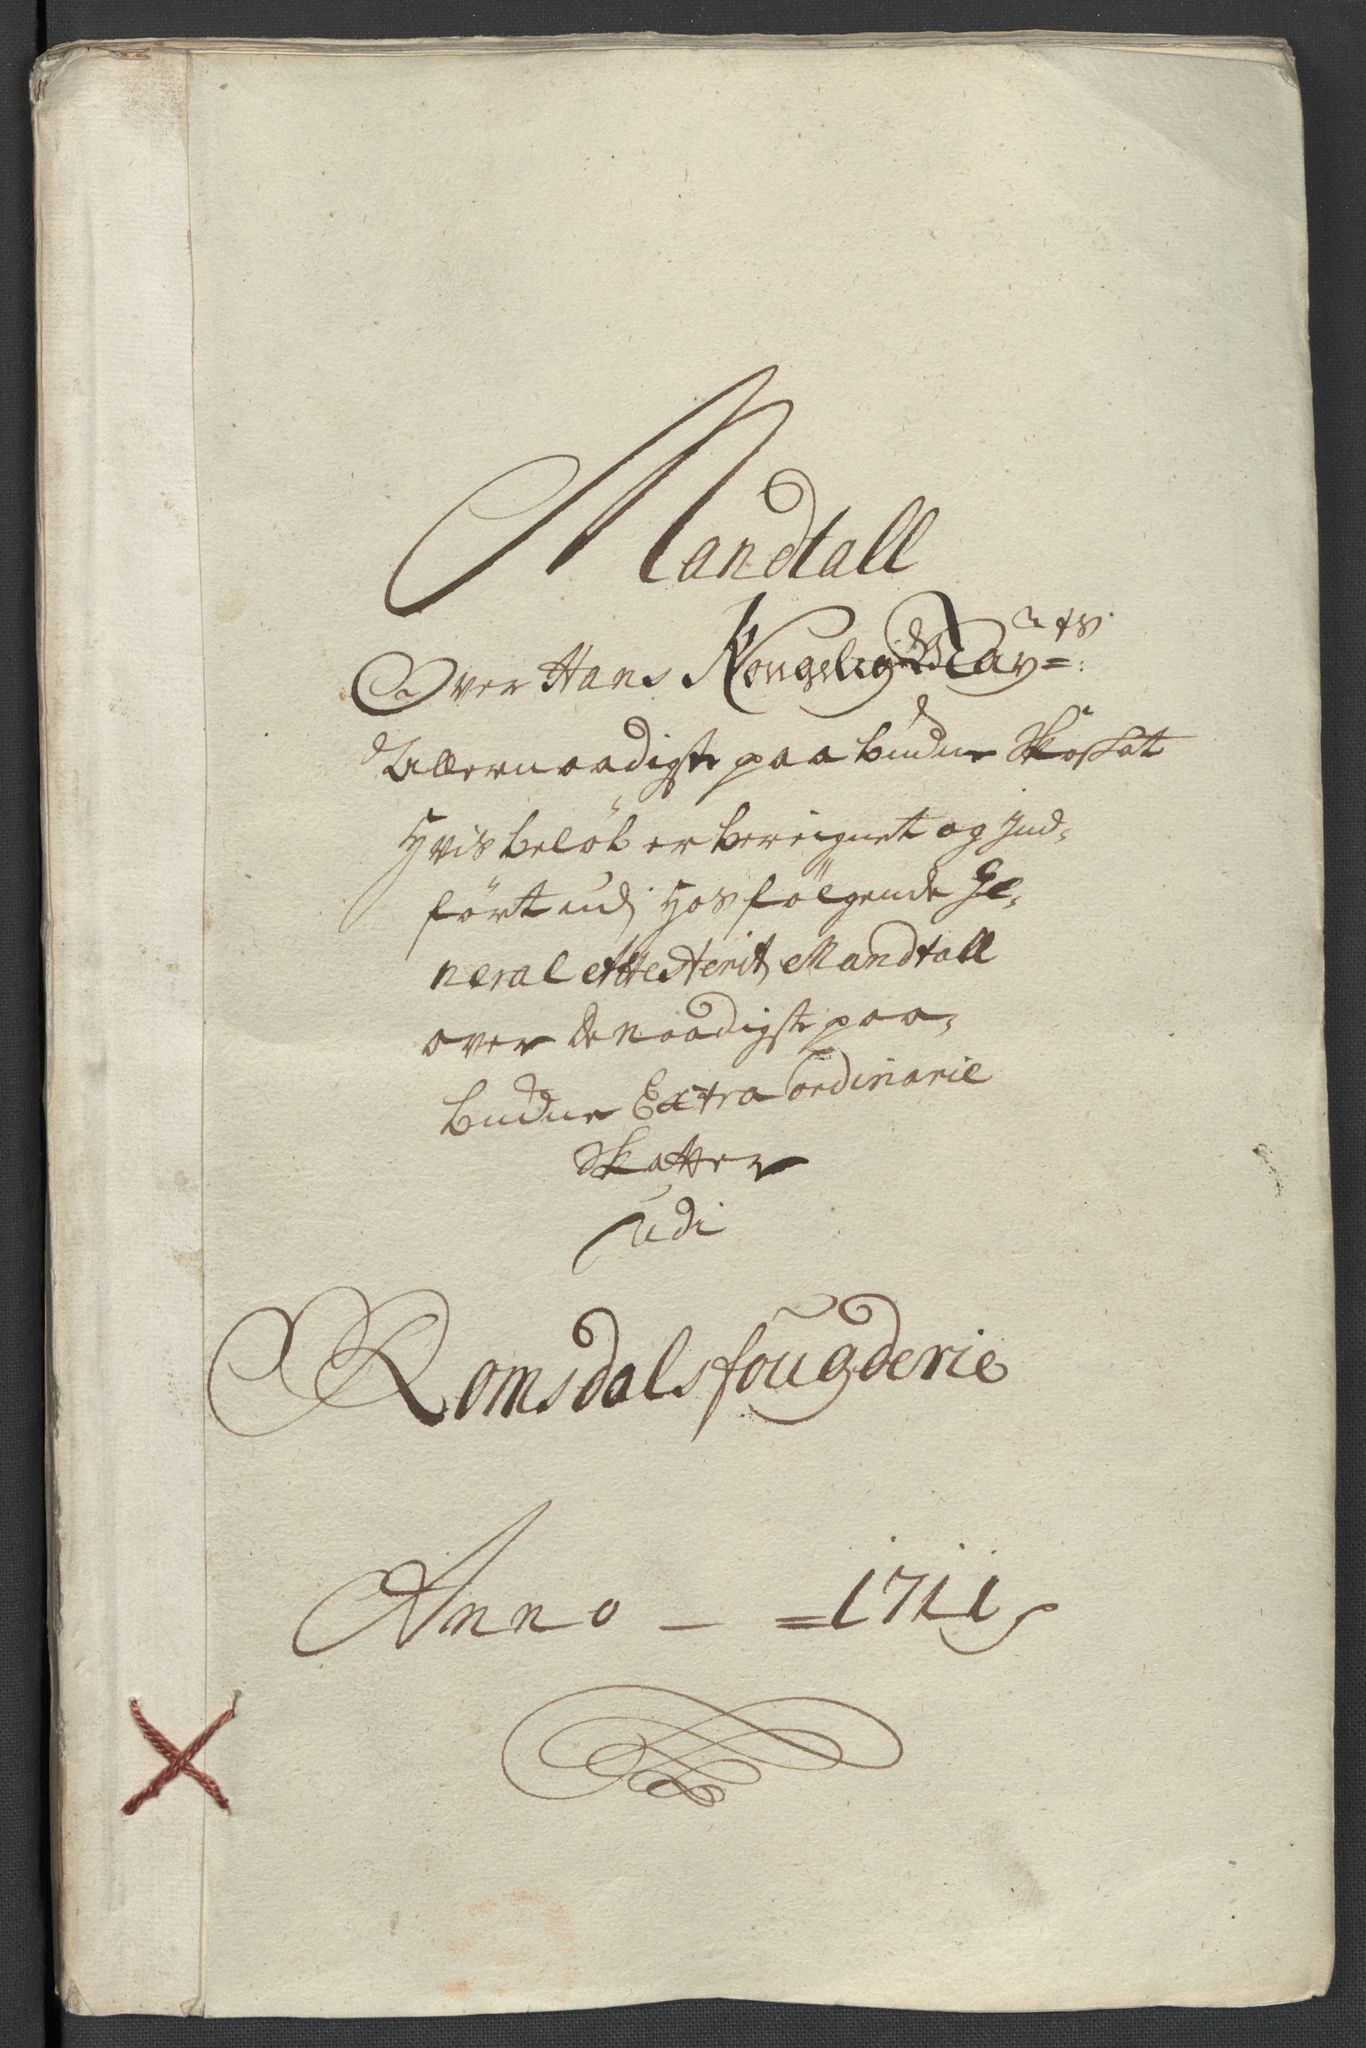 Mandtall
Over Hans Kongelig May=ts:
Allernaadigste paabudne Skoskat
Hvis beløb er bereignet og Ind-
ført udj Hosfølgende Ge-
neral Attesterit Mandtall
over de naadigste paa-
budne Extra ordinarie
Skatter
udi
Romsdals fougderie
Anno — = 1711